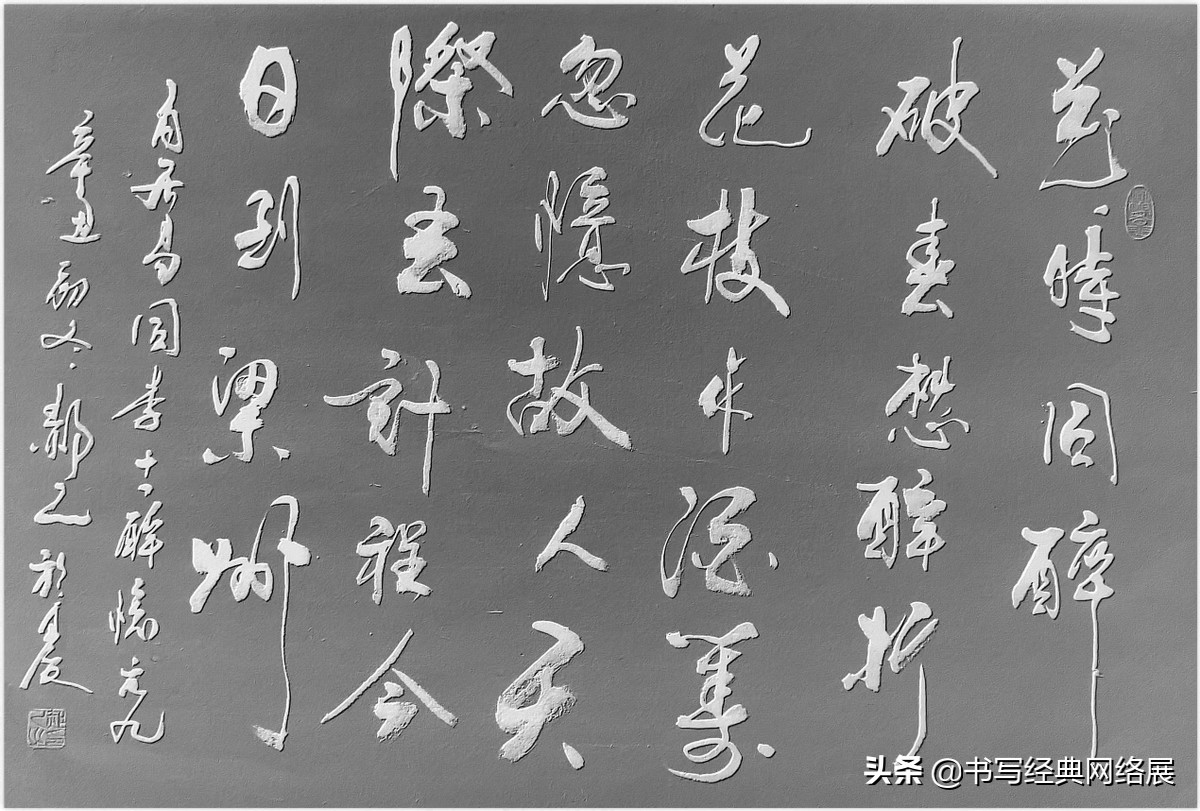 花時同醉
破春愁醉折
花枝作酒籌
忽憶故人天
際去計程今
日到梁州
白居易同李十一醉憶元九
辛丑初冬
头条 @书写经典网络展